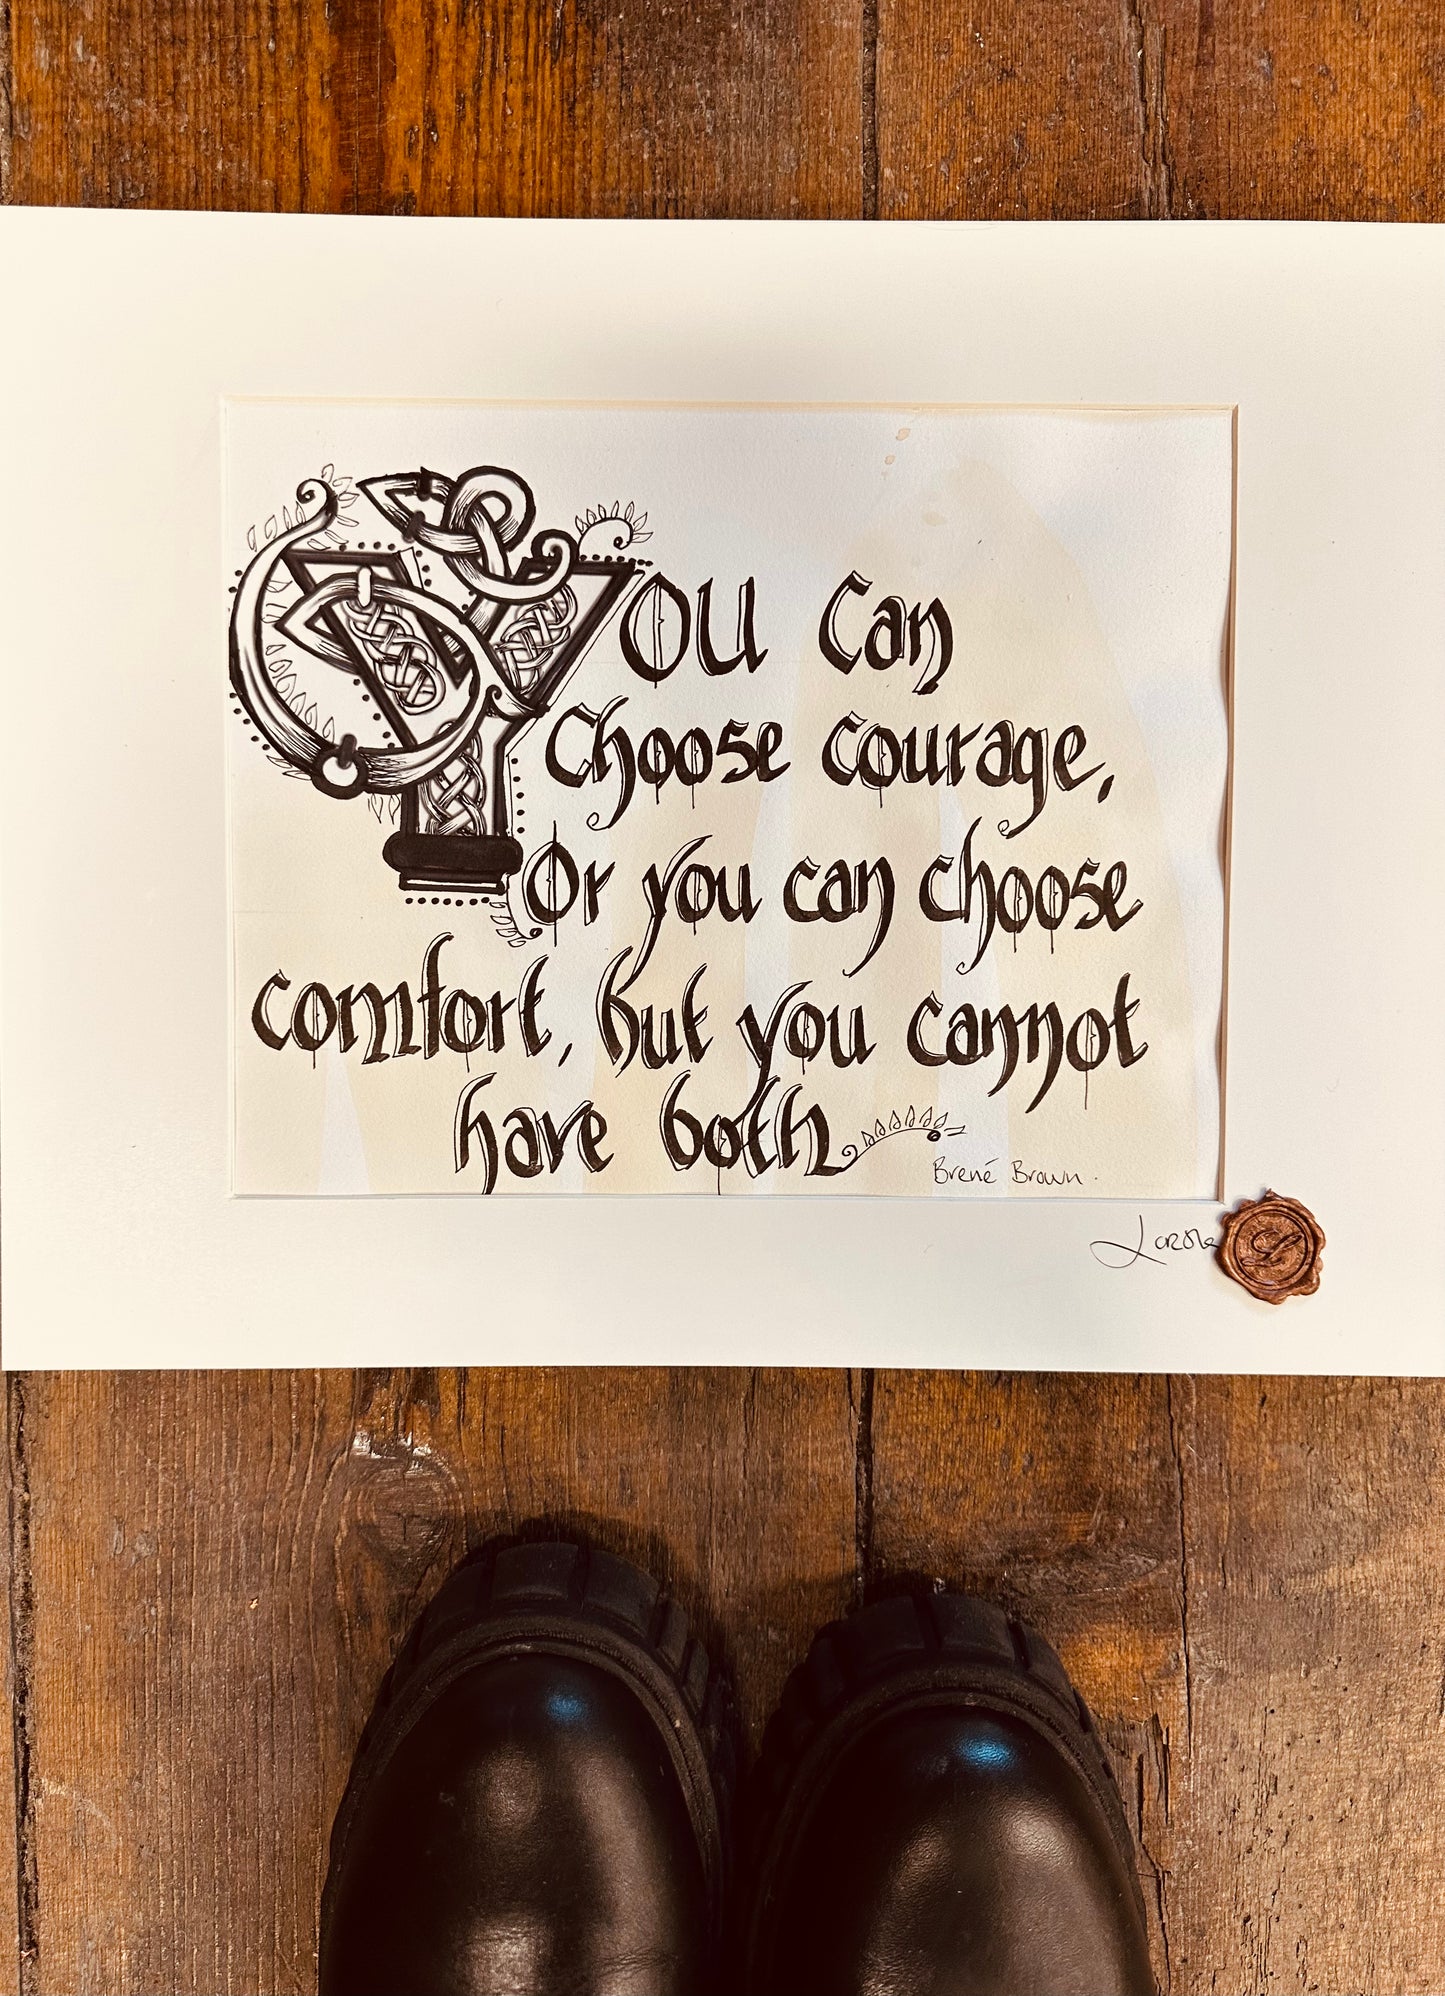 You can
Choose courage,
Or you can choose
comfort, but you cannot
have both
Brené Brown.
L